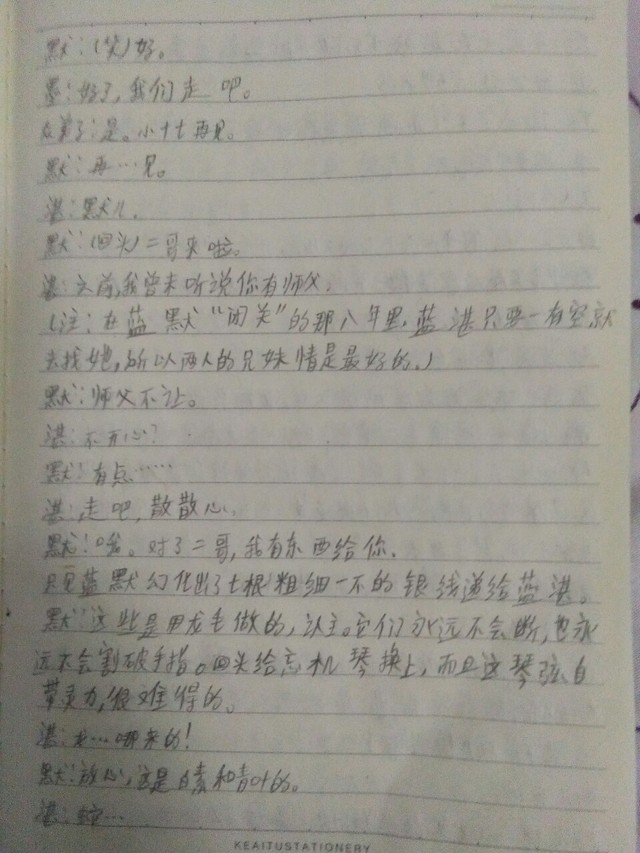 默：(笑)好。
墨：好了，我们走吧。
众弟子：是。小十七再见。
默：再…见。
湛：默儿。
默：(回头)二哥来啦。
湛：之前，我曾未听说你有师父。
(注：在蓝默“闭关”的那八年里，蓝湛只要一有空，就
去找她，所以两人的兄妹情是最好的。)
默：师父不让。
湛：不开心？
默：有点……
湛：走吧，散散心。
默：嗯。对了二哥，我有东西给你。
只见蓝默幻化出了七根粗细一不的银线递给蓝湛。
默：这些是用龙毛做的，认主。它们永远不会断，也永
远不会割破手指。回头给忘机琴换上，而且这琴弦自
带灵力，很难得的。
湛：龙…哪来的！
默：放心，这是白素和青叶的。
湛：…
KEAITUSTATIONERY